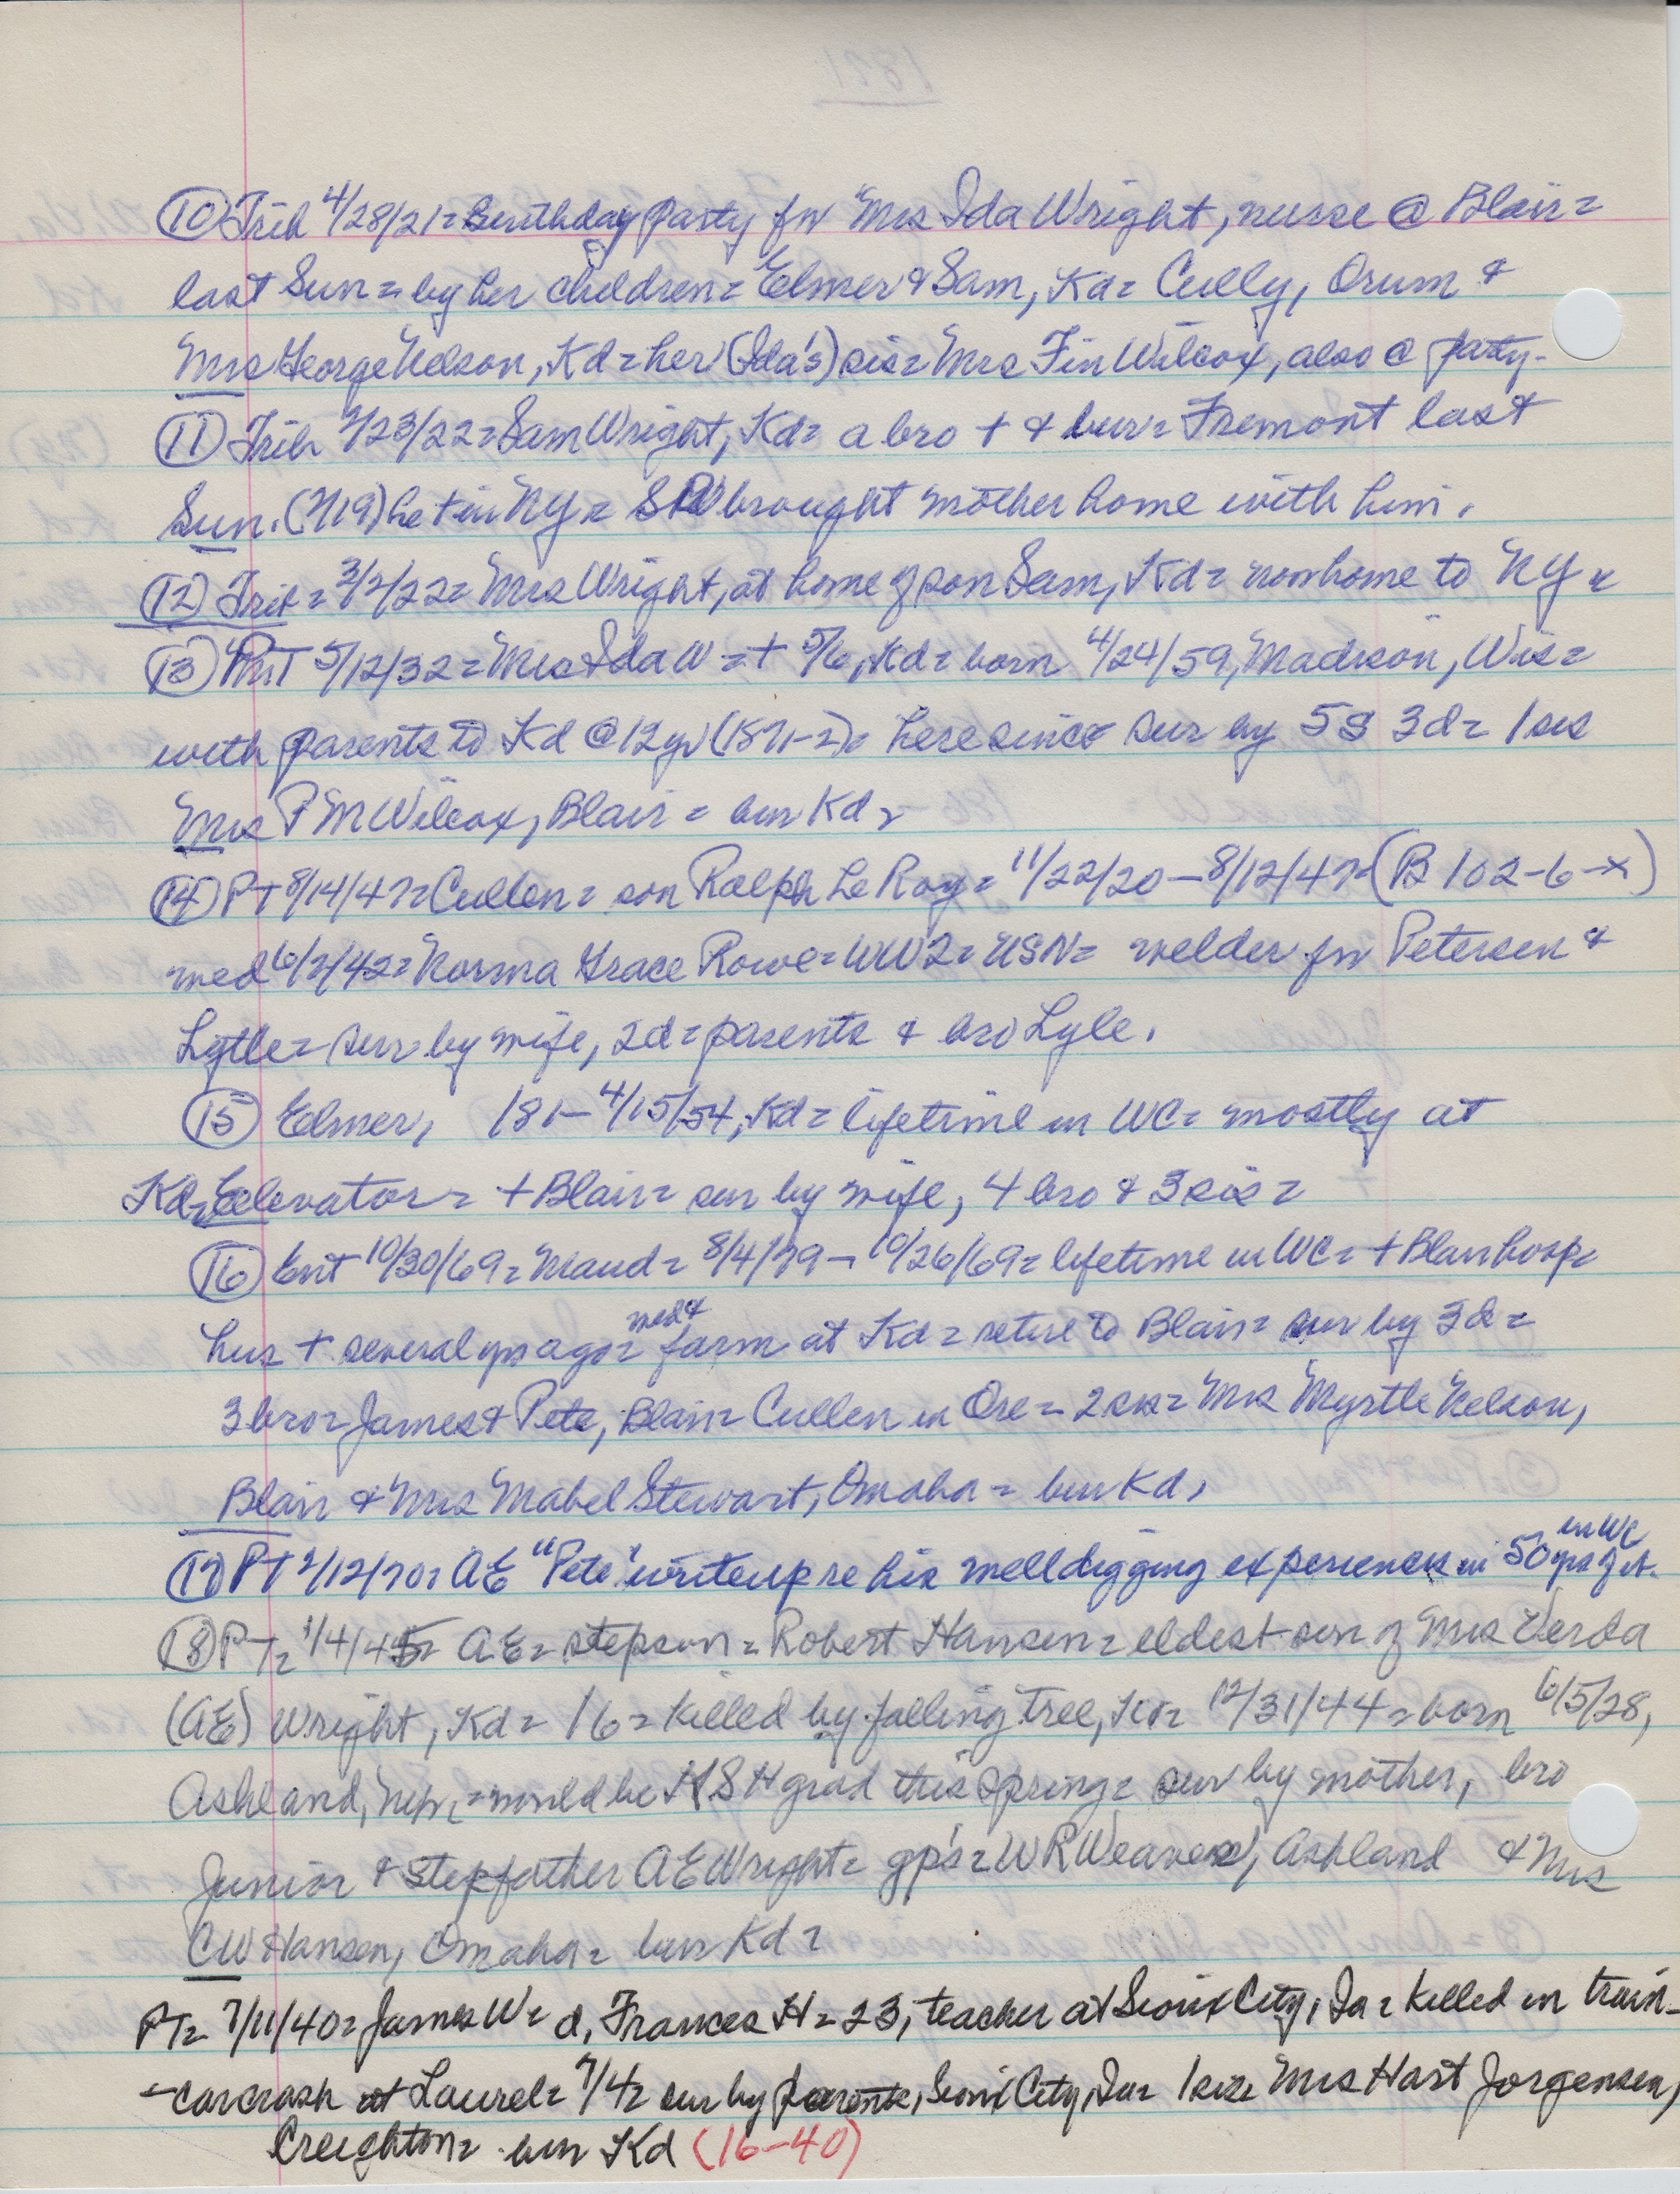 ⑩ Trib 4/28/21= Birthday party fn Mrs Ida Wright, nurse @ Blair=
last Sun= by her children= Elmer & Sam, Kd= Cully, Orum &
Mrs George Nelson, Kd= her (Ida's) sis= Mrs Fin Wilcox, also @ party-
⑪ Trib 2/23/22= Sam Wright, Kd= a bro + & bur= Fremont last
Sun. (2/19) he + in NY= SW brought mother home with him.
⑫ Trib= 3/2/22= Mrs Wright, at home of son Sam, Kd= now home to NY=
⑬ 5/12/32= Mrs Ida W=+ 5/6, Kd= born 4/24/59, Madison, Wis=
with parents to Kd @ 12 yr (1871-2)= here since sur by 5s 3d= 1 sis
Mrs F M Wilcox, Blair= bur Kd=
⑭ PT 8/14/47= Cullen= son Ralph Le Roy= 11/22/20-8/12/47= (B 102-6-x)
med 6/2/42= Norma Grace Rowe= WW2= USN= welder fn Petersen &
Lytle= sur by wife, 2d= parents & bro Lyle.
⑮ Elmer, 181-4/15/54, Kd= lifetime in WC= mostly at
Kd= Elevator= + Blair= sur by wife, 4 bro & 3 sis=
⑯ Ent 10/30/69= Maud= 8/4/79-10/26/69= lifetime in WC= + Blair hosp=
hus + several yrs ago= med & farm at Kd= retire to Blair= sur by 3d=
3 bro= James & Pete, Blair= Cullen in Ore= 2 sis= Mrs Myrtle Nelson,
Blair & Mrs Mabel Stewart, Omaha= bur Kd,
⑰ PT 2/12/70= AE "Pete" writeup re his welldigging experiences in 50 yrs of it. in WC
⑱ PT= 1/4/45= AE= stepson= Robert Hansen= eldest son of Mrs Verda
(AE) Wright, Kd= 16= killed by falling tree, Kd= 12/31/44= born 6/5/28,
Ashland, Neb,= would be KSH grad this spring= sur by mother, bro
Junior & stepfather AE Wright= gp's= W R Weaver, Ashland & Mrs
CW Hansen, Omaha= bur Kd=
PT= 7/11/40= James W= d, Frances H= 23, teacher at Sioux City, Ia= killed in train-
-car crash at Laurel= 7/4= sur by parents, Sioux City, Ia= 1 sis= Mrs Hart Jorgensen,
Creighton= bur Kd (16-40)